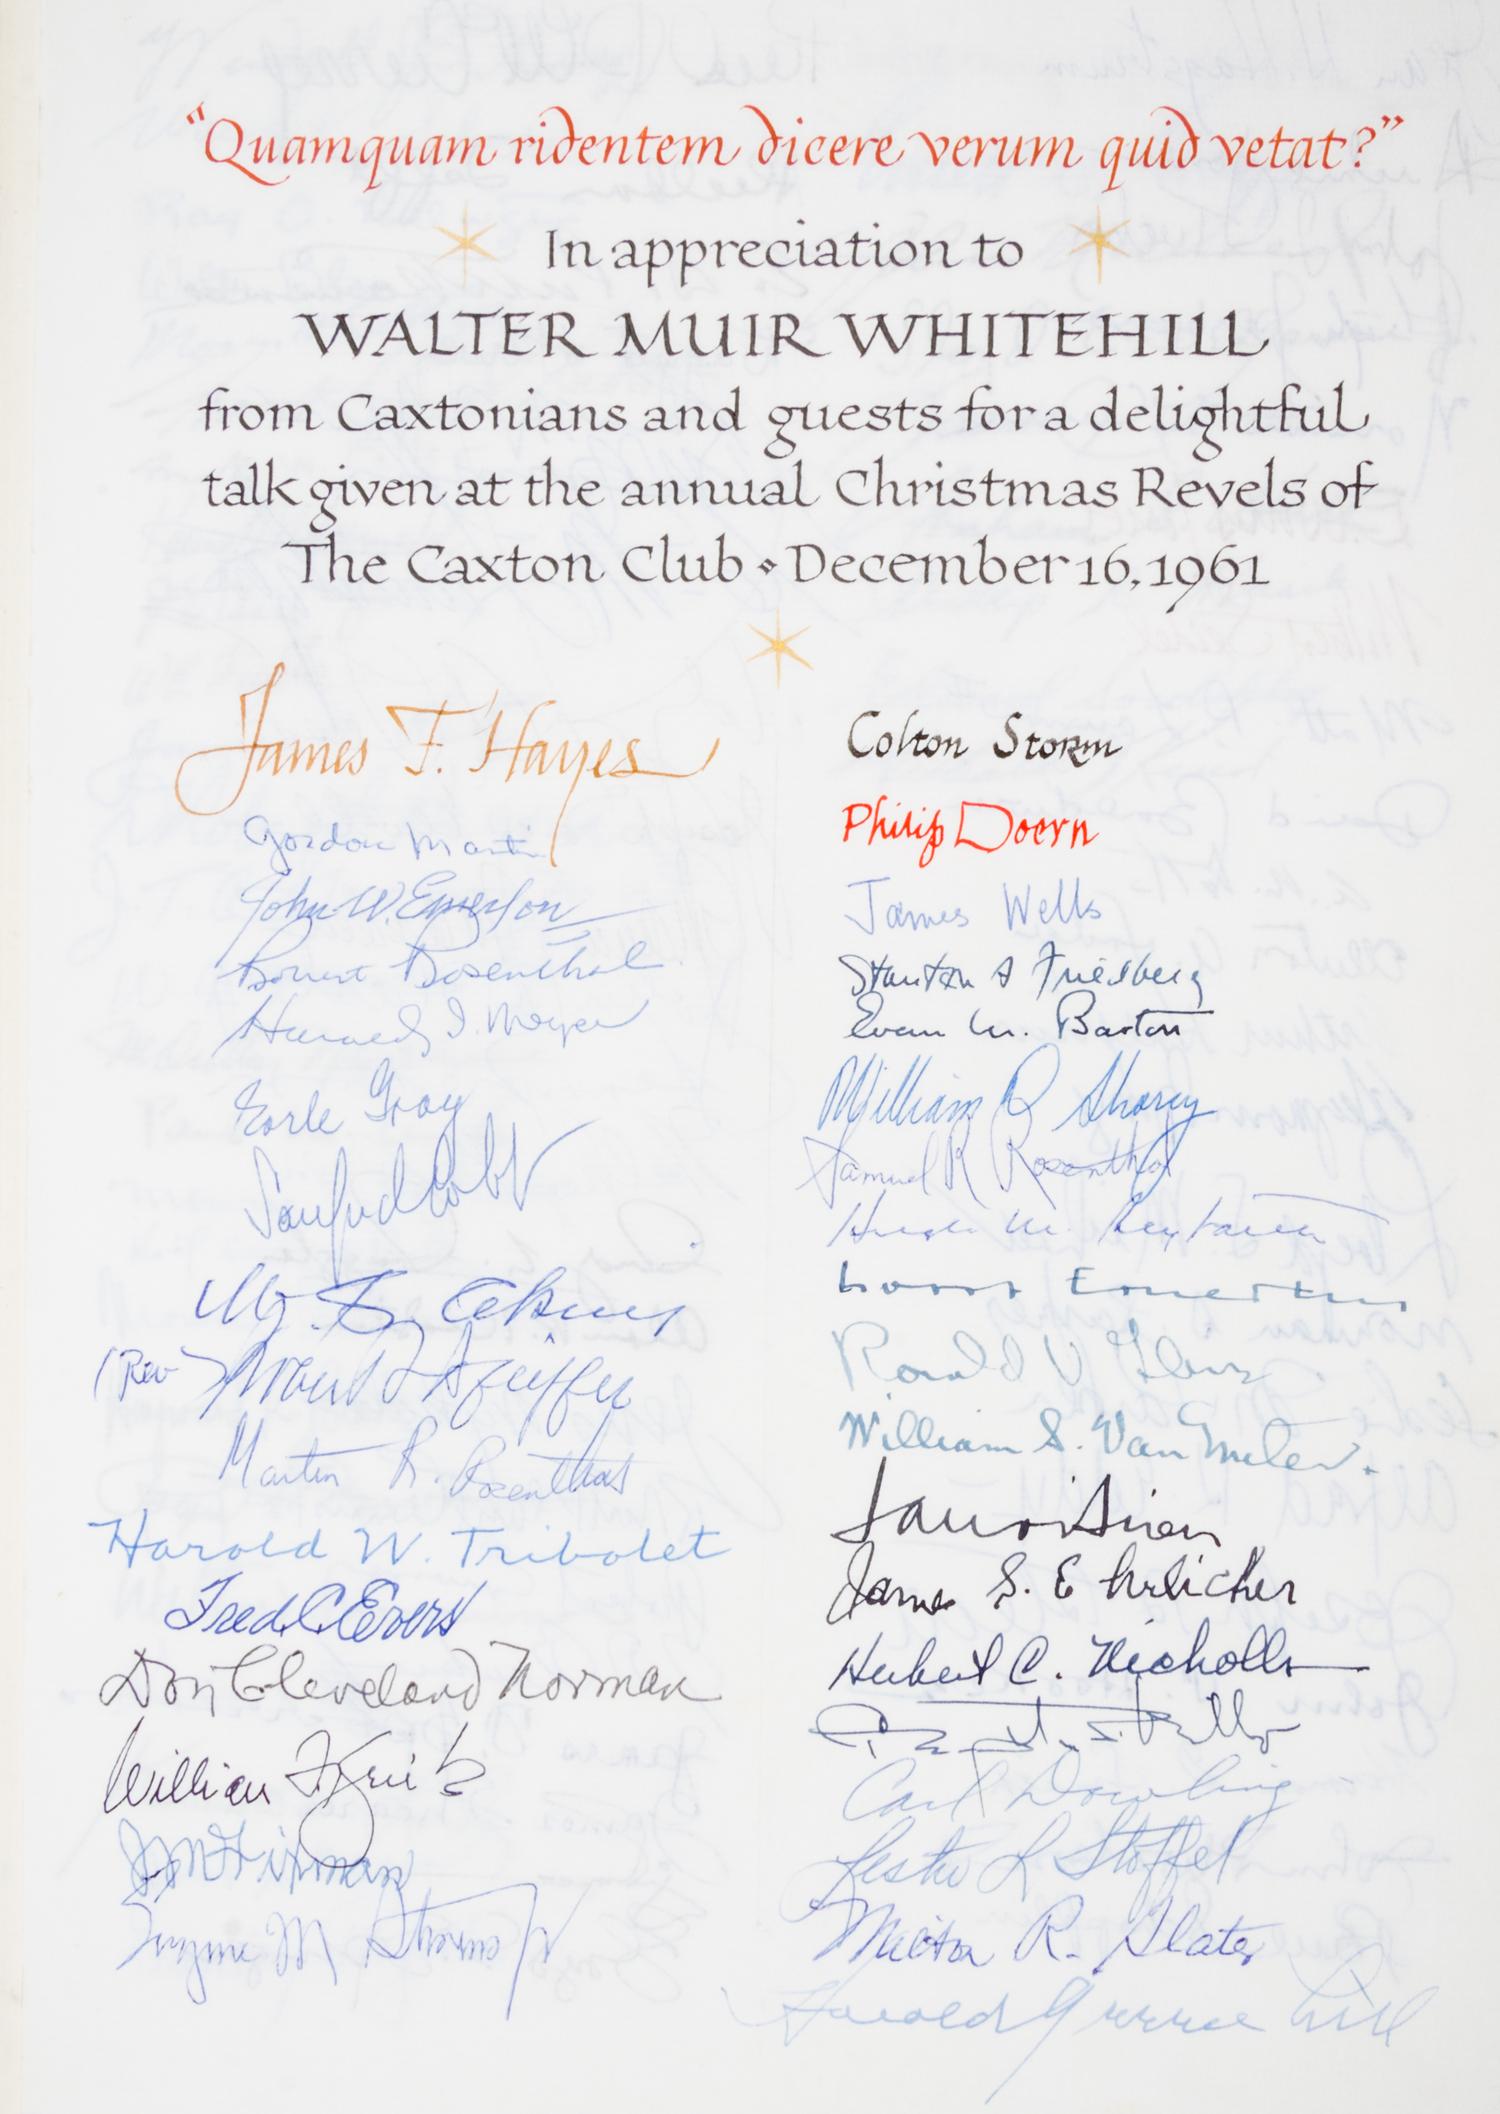 “Quamquam ridentem dicere verum quid vetat?”
In appreciation to
WALTER MUIR WHITEHILL
from Caxtonians and guests for a delightful
talk given at the annual Christmas Revels of
The Caxton Club ⬥ December 16, 1961
James F. Hayes
Gordon Martin
John W. Emerson
Robert Rosenthal
Harold I. Meyer
Earle Gray
Sanford Cobb
(Rev
Martin R. Rosenthal
Harold W. Tribolet
Fred C Evers
Don Cleveland Norman
William
Fixman
M
Colton Storm
Philip Doern
James Wells
Stanton A Friedberg
Evan M. Barton
William R Shorey
Samuel R Rosenthal
M.
Ronald V
William S. Van
James S. Ehrlicher
Herbert C. Nicholls
Carl Dowling
Lester L Stoffel
R. Slater
Harold